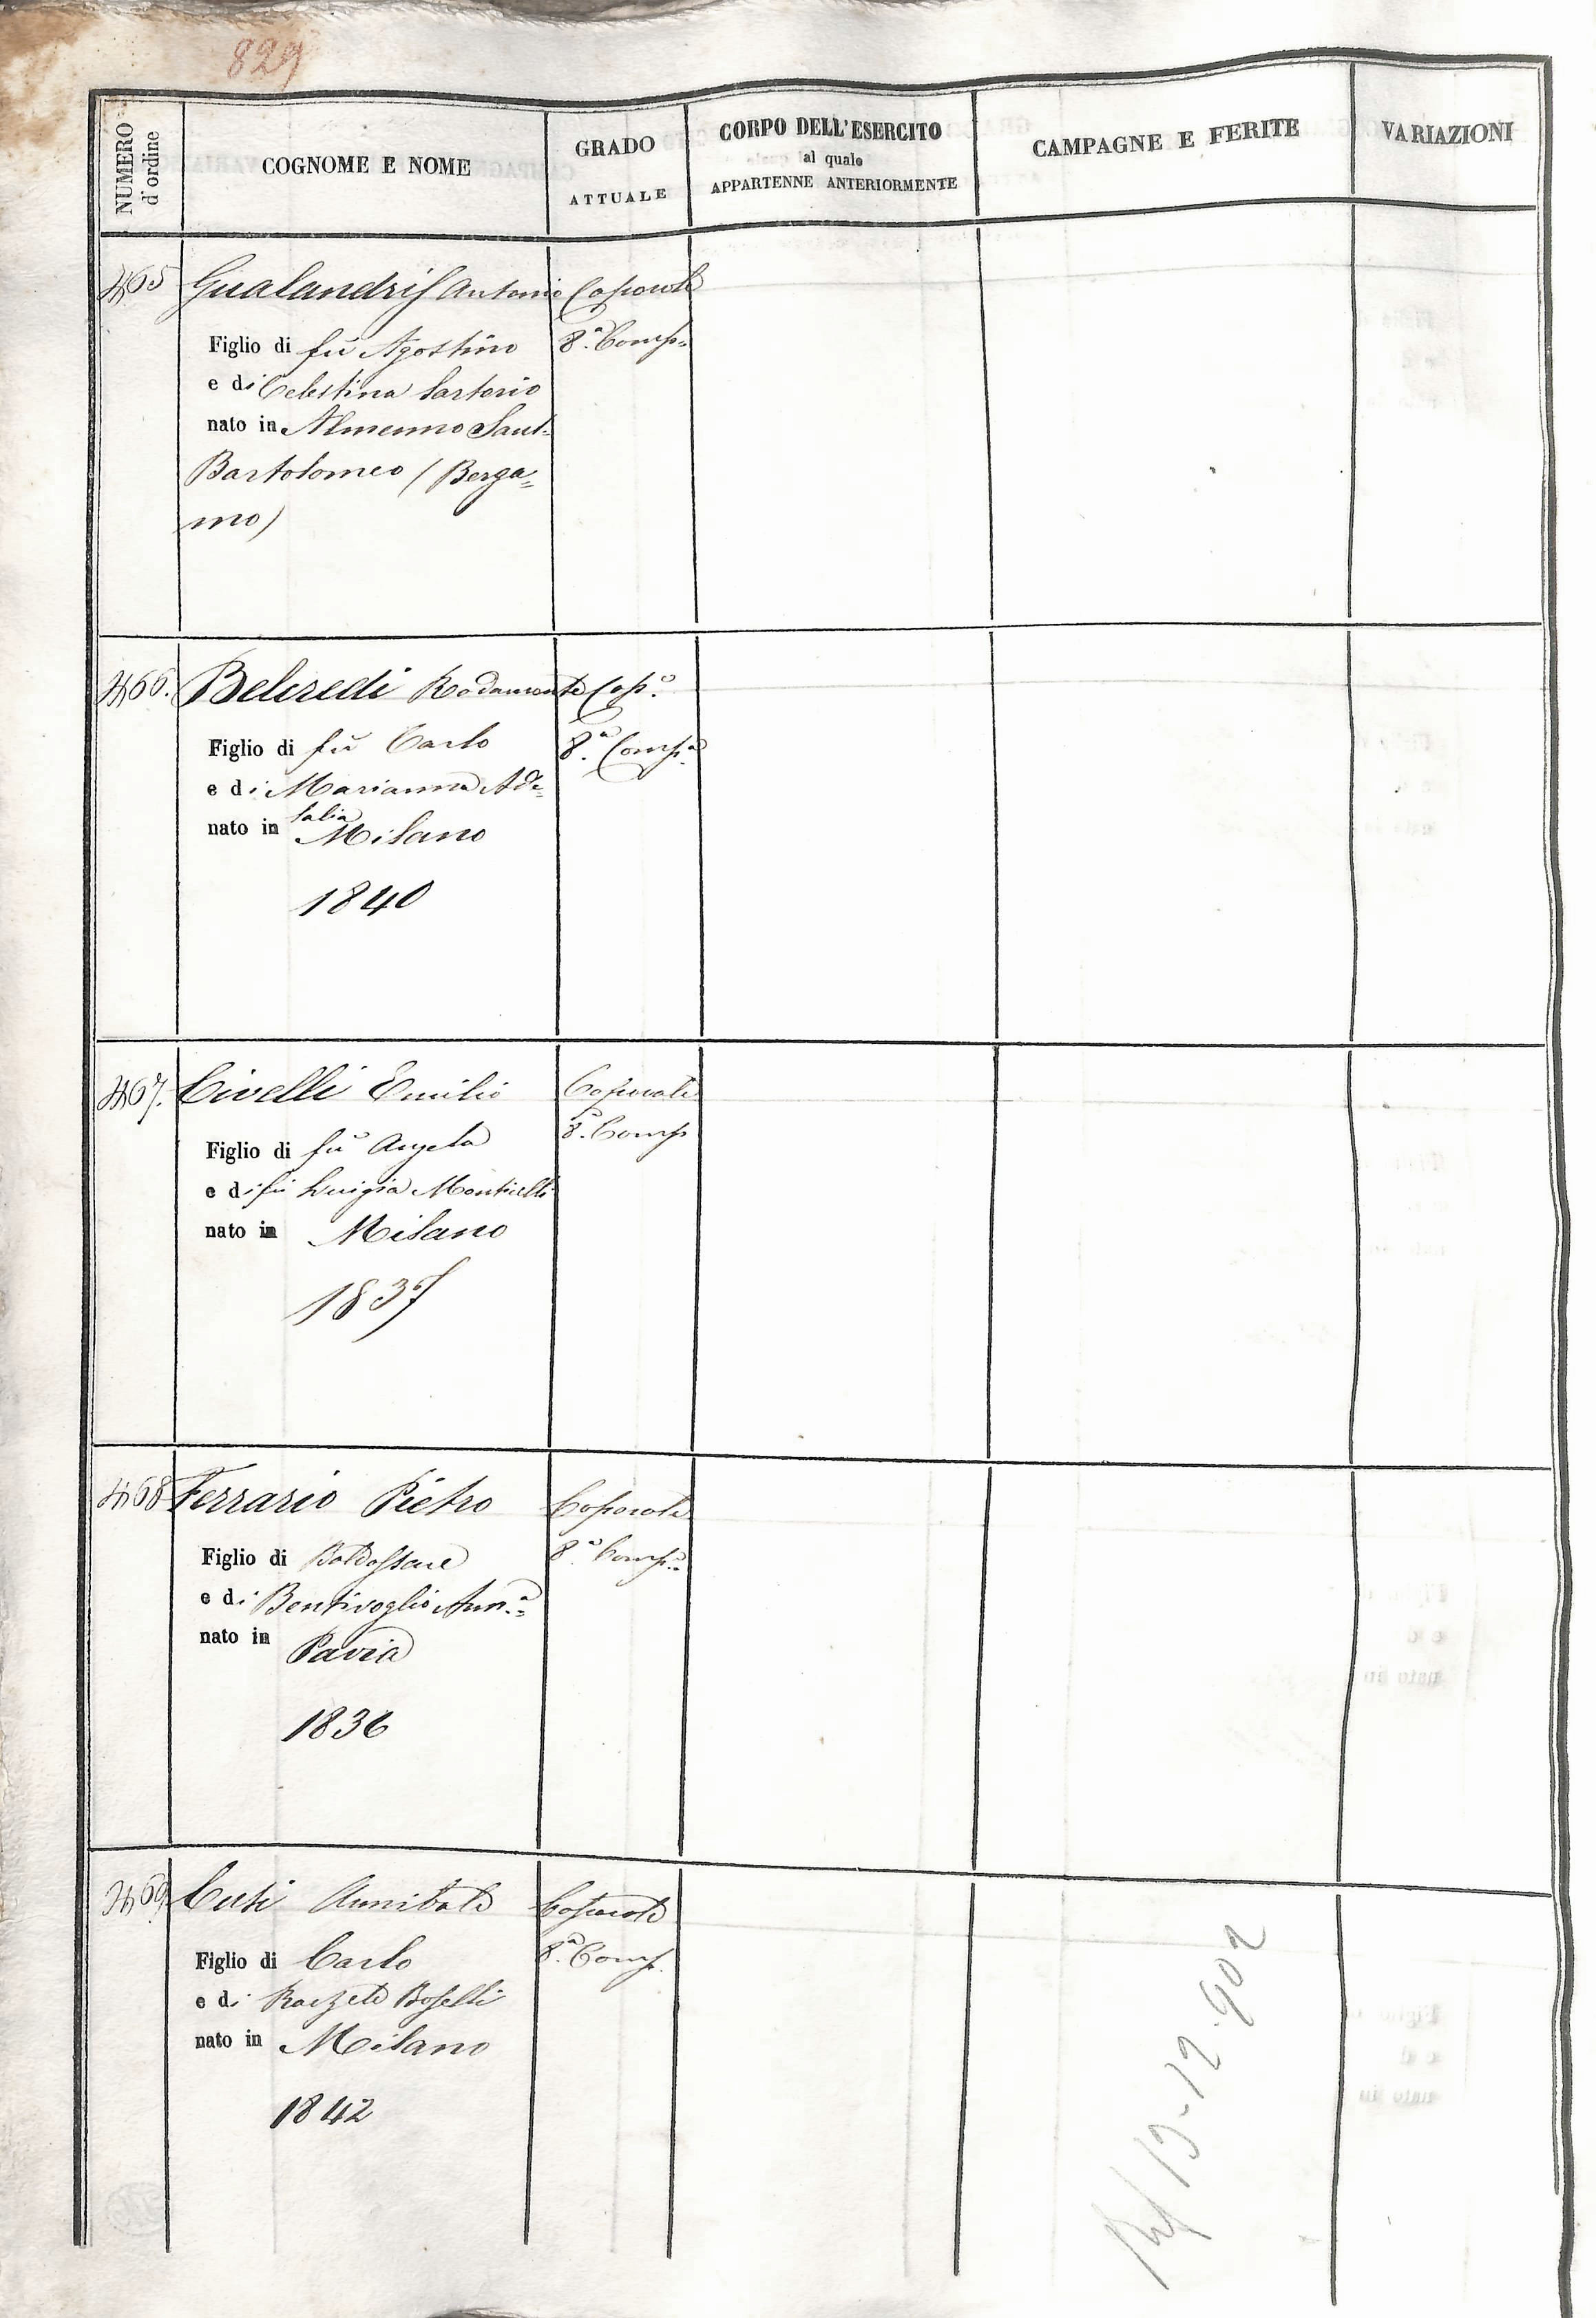 829
NUMERO d'ordine
COGNOME E NOME
GRADO ATTUALE
CORPO DELL'ESERCITO al quale APPARTENNE ANTERIORMENTE
CAMPAGNE E FERITE
VARIAZIONI
465 Gualandris Antonio Caporale
Figlio di fù Agostino 8.ª Comp.
e di Celestina Sartorio
nato in Almenno Sant-
Bartolomeo (Berga=
mo)
466. Belcredi Rodamonte Cap.e
Figlio di fù Carlo 8.ª Comp.a
e di Marianna Ade=
salia
nato in Milano
1840
467. Civelli Emilio Caporale
Figlio di fù Angelo 8.ª Comp
e di fù Luigia Monticelli
nato in Milano
1837
468 Ferrario Pietro Caporale
Figlio di Baldassare 8.ª Comp.a
e di Bentivoglio Ann.a
nato in Pavia
1836
469. Cusi Annibale Caporale
Figlio di Carlo 8.ª Comp.
e di Boselli
nato in Milano
1842
13-12-902